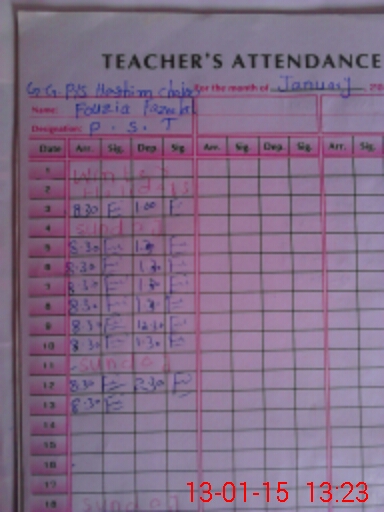 TEACHER'S ATTENDANCE
G.G. P/S Hashim For the month of January 20
Name: Fouzia
Designation: P . S . T
Date Arr. Sig. Dep. Sig. Arr. Sig. Dep. Sig. Arr. Sig.
1
2
3 8.30 E 1.00 E
4 Sunday
5 8.30 E 1.30 E
6 8.30 E 1.30 E
7 8.30 E 1.30 E
8 8.30 E 1.30 E
9 8.30 E 12.30 E
10 8.30 E 1.30 E
11 Sunday
12 8.30 E 2.30 E
13 8.30 E
14
15
16
17
18 Sunday
13-01-15 13:23